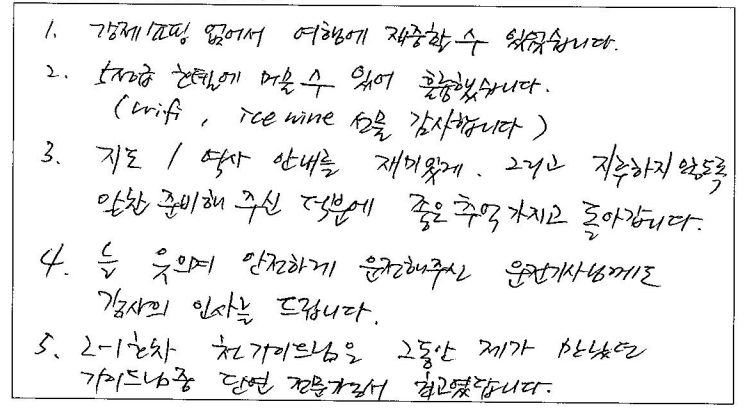 1. 강제쇼핑 없어서 여행에 재중할 수 있었습니다.
2. 5성급 호텔에 머물 수 있어 훌륭했습니다.
(wifi, ice wine 선물 감사합니다)
3. 지도 / 역사 안내를 재미있게. 그리고 지루하지 않도록
알찬 준비해 주신 덕분에 좋은 추억 가지고 돌아갑니다.
4. 늘 웃으며 안전하게 운전해주신 운전기사님께도
감사의 인사를 드립니다.
5. 2-1호차 천가이드님은 그동안 제가 만났던
가이드님중 단연 전문가로서 최고였답니다.